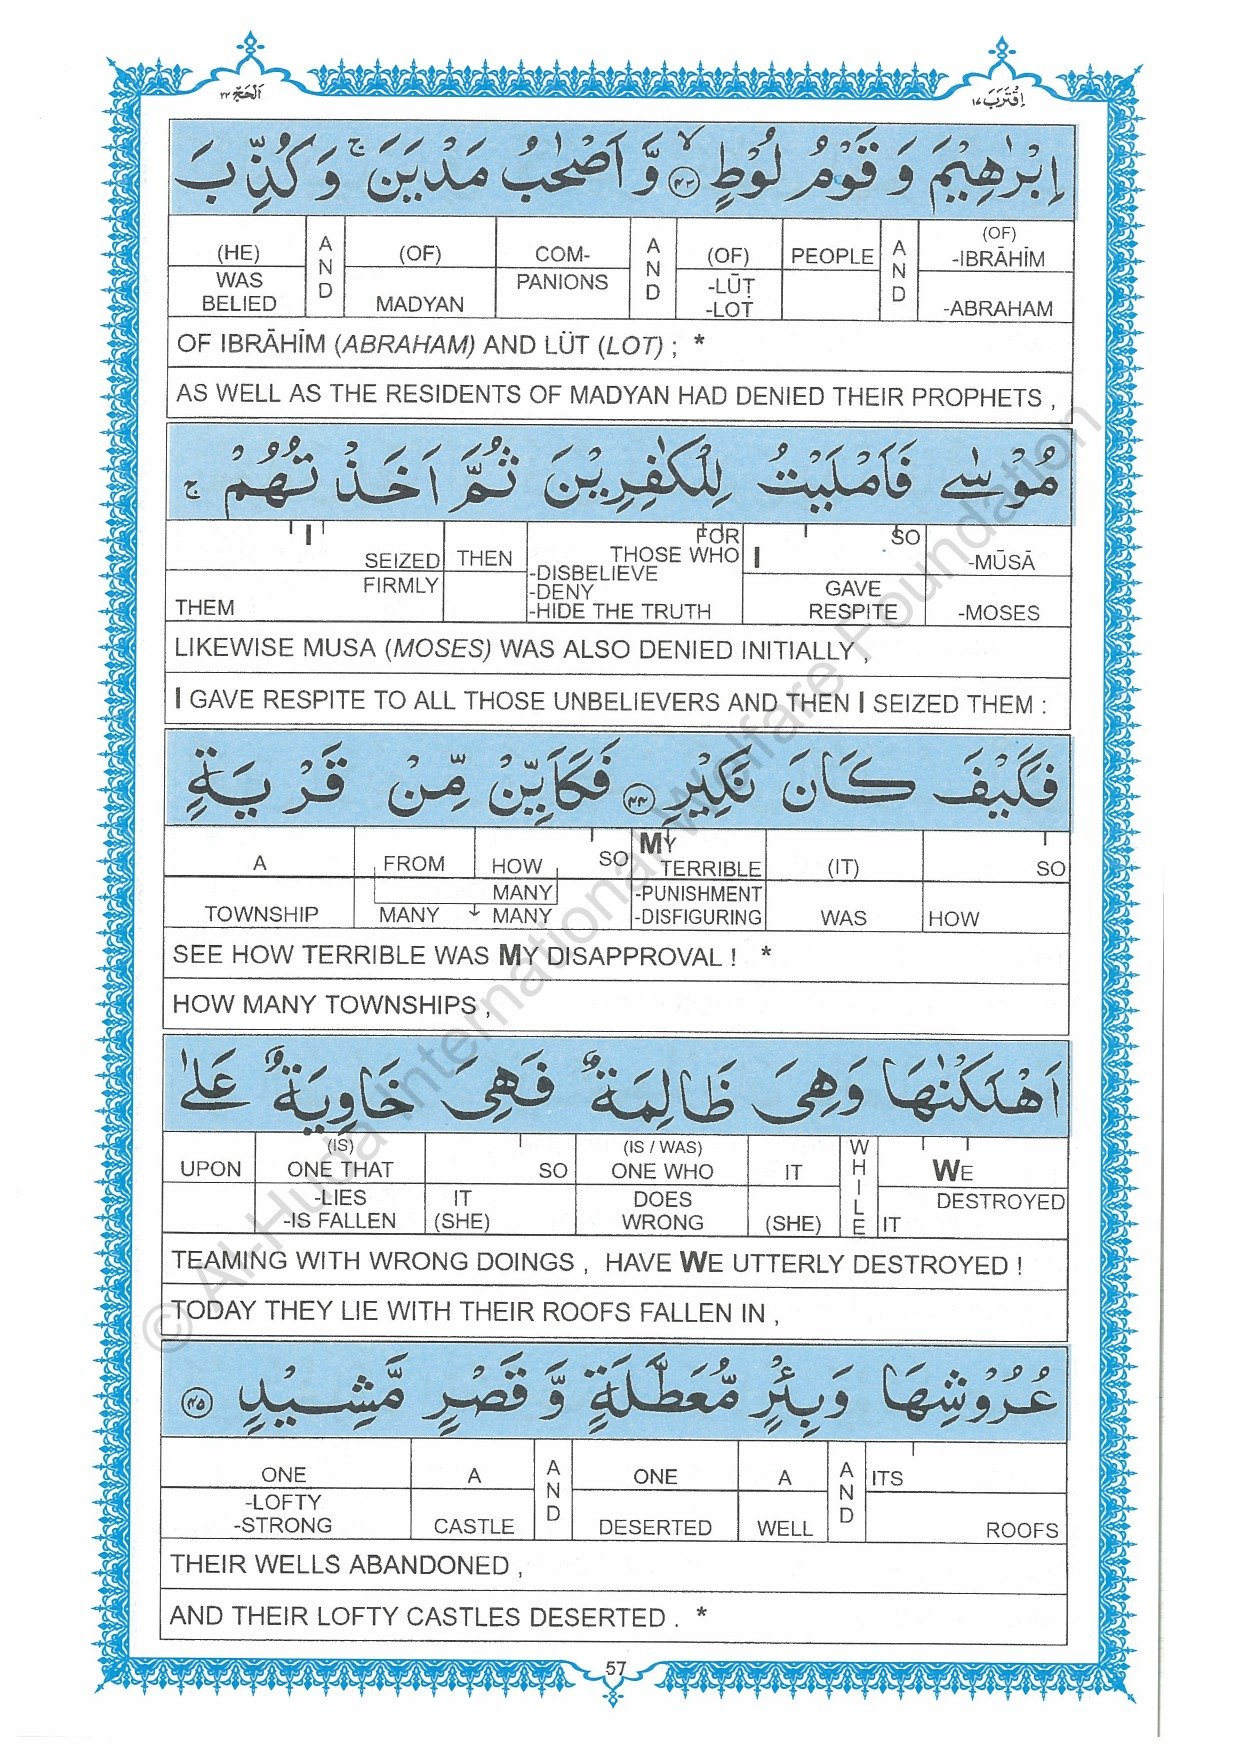 اَلْحَجّ ٢٢
اِقْتَرَبَ ١٧
اِبْرٰهِيْمَ وَ قَوْمُ لُوْطٍ ۙ ﴿۴۳﴾ وَّ اَصْحٰبُ مَدْيَنَ ۚ وَ كُذِّبَ
(HE) AND (OF) COM- AND (OF) PEOPLE AND (OF) -IBRĀHĪM
WAS BELIED MADYAN PANIONS -LŪṬ -LOṬ -ABRAHAM
OF IBRĀHĪM (ABRAHAM) AND LÜT (LOT) ; *
AS WELL AS THE RESIDENTS OF MADYAN HAD DENIED THEIR PROPHETS ,
مُوْسٰى فَاَمْلَيْتُ لِلْكٰفِرِيْنَ ثُمَّ اَخَذْتُهُمْ ۚ
I SEIZED THEN FOR THOSE WHO I SO -MŪSĀ
FIRMLY THEM -DISBELIEVE -DENY -HIDE THE TRUTH GAVE RESPITE -MOSES
LIKEWISE MUSA (MOSES) WAS ALSO DENIED INITIALLY ,
I GAVE RESPITE TO ALL THOSE UNBELIEVERS AND THEN I SEIZED THEM :
فَكَيْفَ كَانَ نَكِيْرِ ﴿۴۴﴾ فَكَاَيِّنْ مِّنْ قَرْيَةٍ
A FROM HOW SO MY TERRIBLE (IT) SO
TOWNSHIP MANY MANY MANY -PUNISHMENT -DISFIGURING WAS HOW
SEE HOW TERRIBLE WAS MY DISAPPROVAL ! *
HOW MANY TOWNSHIPS ,
اَهْلَكْنٰهَا وَهِىَ ظَالِمَةٌ فَهِىَ خَاوِيَةٌ عَلٰى
UPON (IS) ONE THAT SO (IS / WAS) ONE WHO IT WHILE WE
-LIES -IS FALLEN IT (SHE) DOES WRONG (SHE) DESTROYED IT
TEAMING WITH WRONG DOINGS , HAVE WE UTTERLY DESTROYED !
TODAY THEY LIE WITH THEIR ROOFS FALLEN IN ,
عُرُوْشِهَا وَبِئْرٍ مُّعَطَّلَةٍ وَّ قَصْرٍ مَّشِيْدٍ ﴿۴۵﴾
ONE A AND ONE A AND ITS
-LOFTY -STRONG CASTLE DESERTED WELL ROOFS
THEIR WELLS ABANDONED ,
AND THEIR LOFTY CASTLES DESERTED . *
57
© Al-Huda International Welfare Foundation